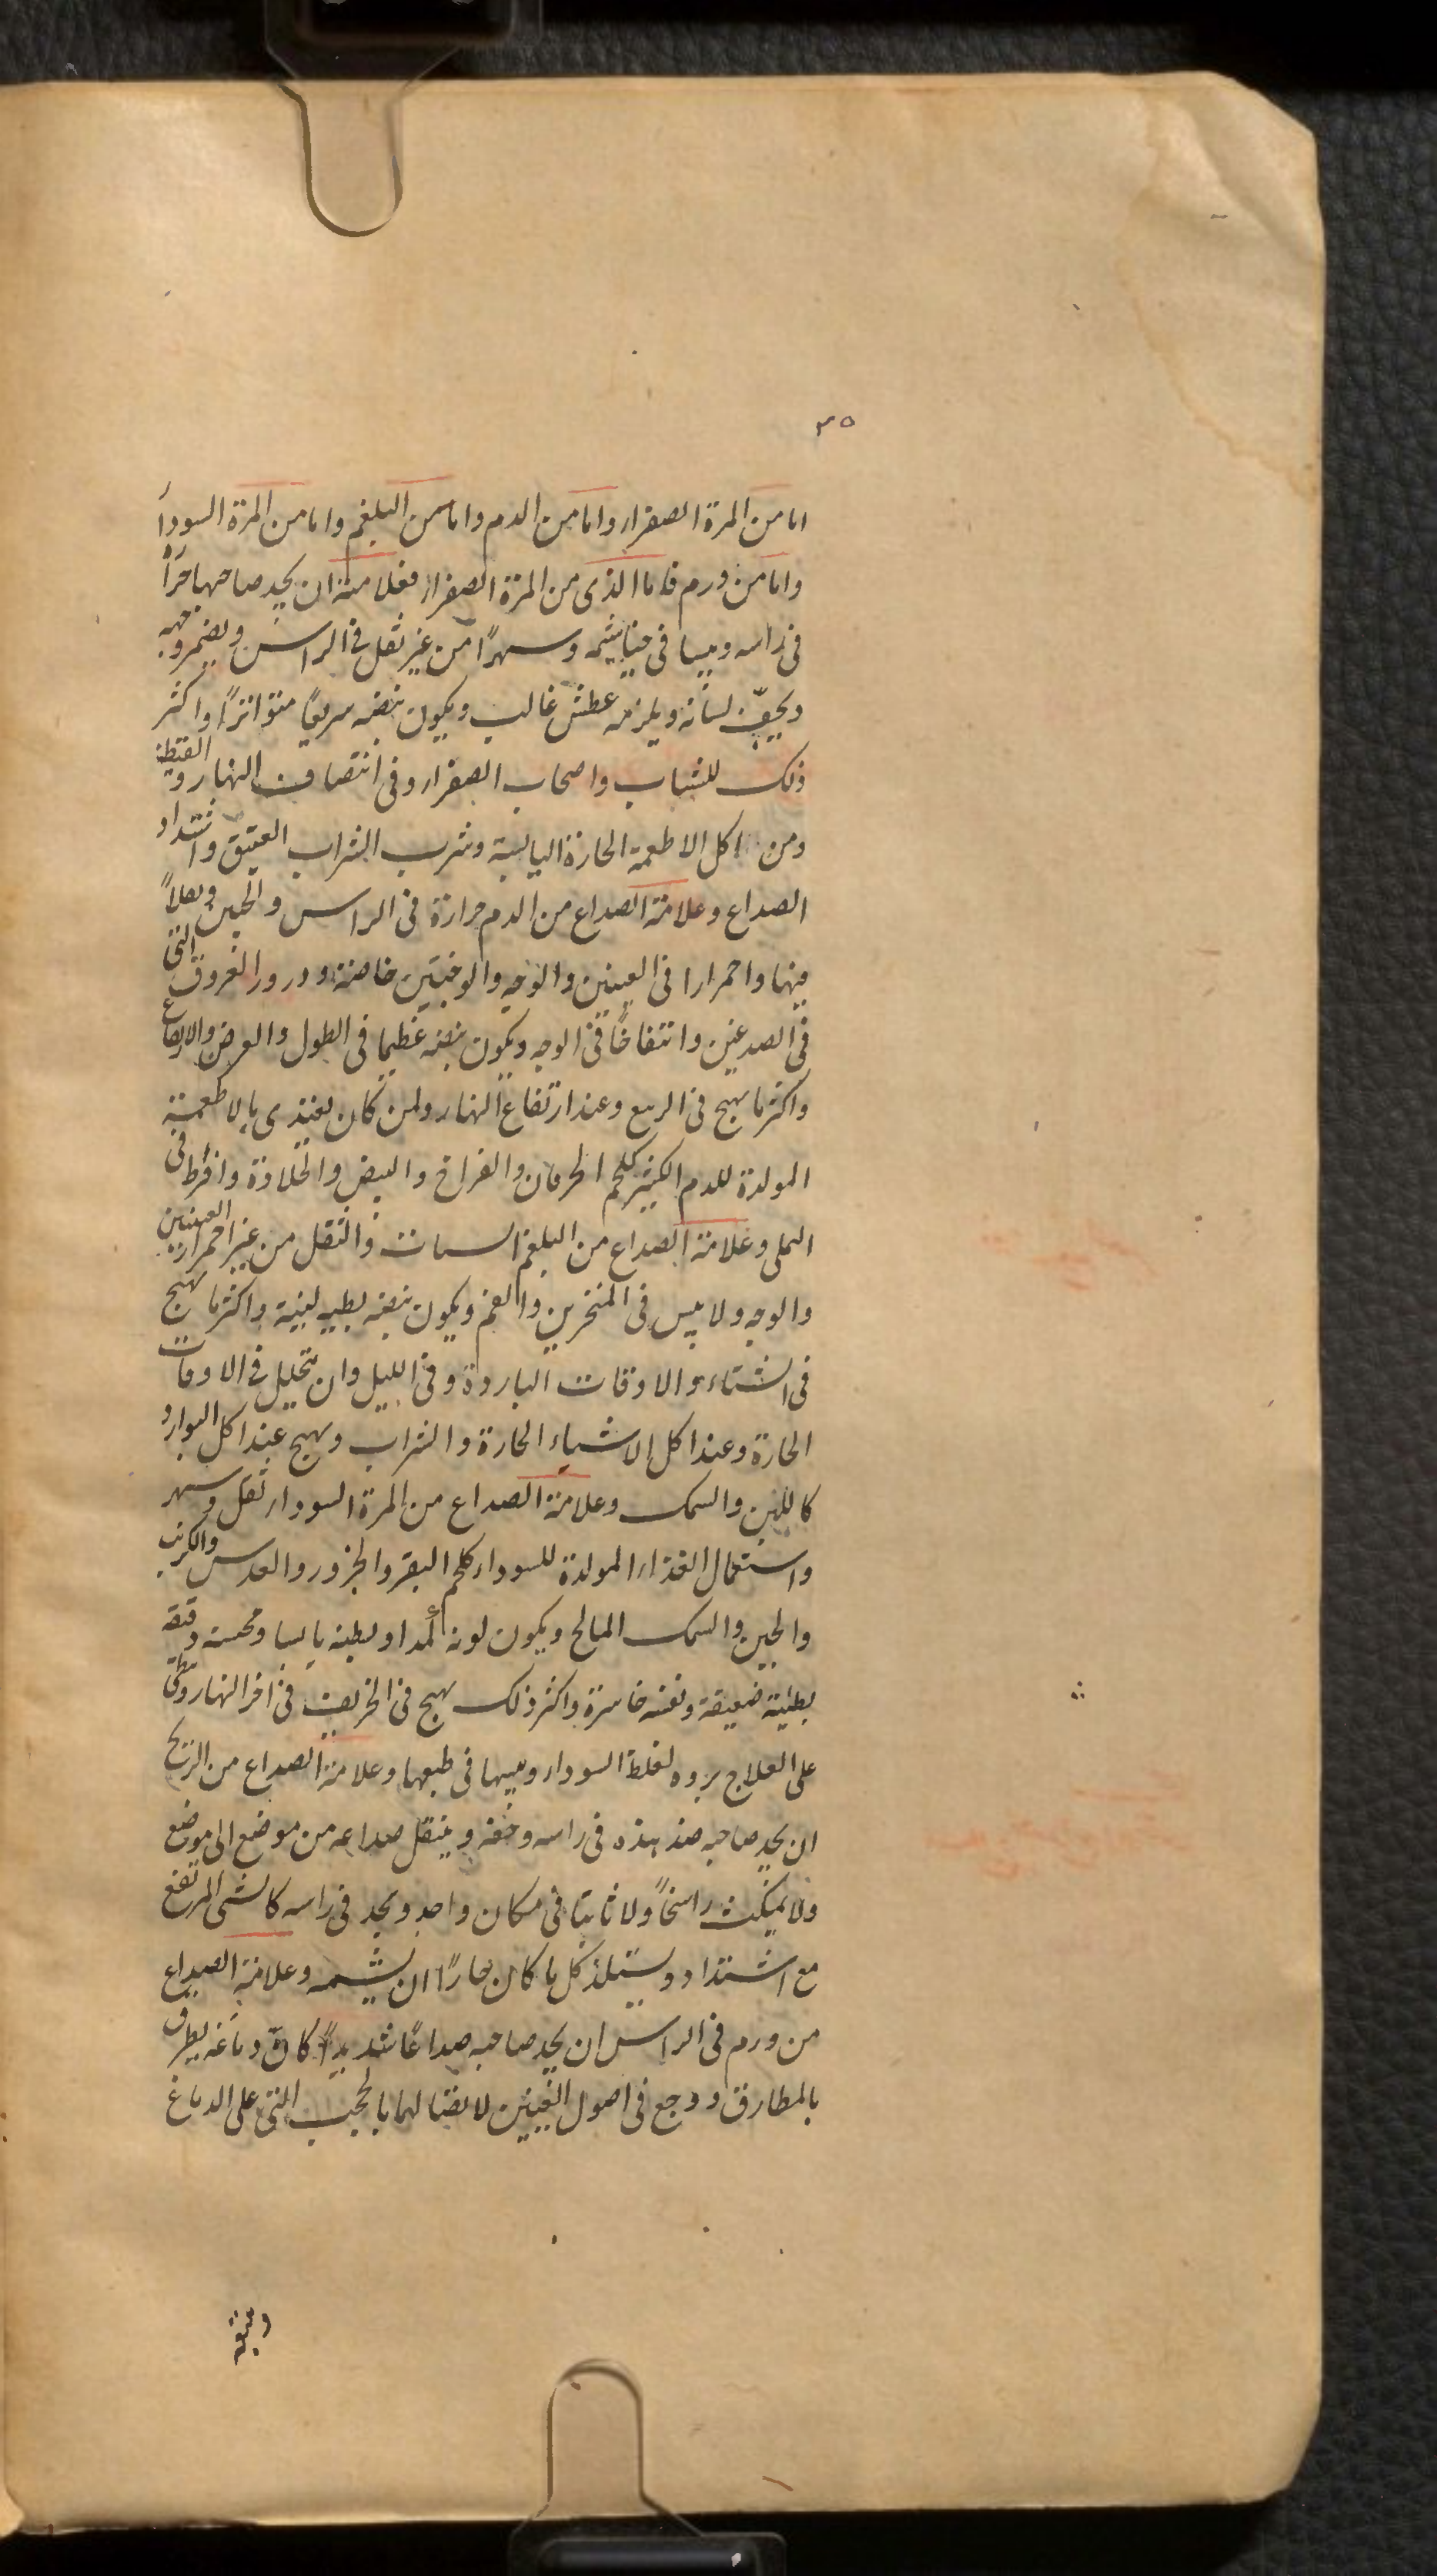 ٣٥
اما من المرة الصفراء واما من الدم واما من البلغم واما من المرة السوداء
واما من ورم فاما الذى من المرة الصفراء فعلامته ان يجد صاحبها حرًا
فى راسه ويبسا فى خياشيمه وسهرًا من غير ثقل فى الراس ويصفر وجهه
ويجفّ لسانه ويلزمه عطش غالب ويكون نبضه سريعًا متواترًا واكثر
ذلك للشباب واصحاب الصفراء وفى انتصاف النهار والقيظ
ومن اكل الاطعمة الحارة اليابسة وشرب الشراب العتيق واشتداد
الصداع وعلامة الصداع من الدم حرارة فى الراس والجبين وثقلاً
فيها واحمرارا فى العينين والوجه والوجنتين خاصة ودرور العروق التى
فى الصدغين وانتفاخًا فى الوجه ويكون نبضه عظيما فى الطول والعرض والارتفاع
واكثر ما يهيج فى الربيع وعند ارتفاع النهار ولمن كان يغتذى بالاطعمة
المولدة للدم الكثير كلحم الخرفان والفراخ والبيض والحلاوة وافرط فى
التملى وعلامة الصداع من البلغم السبات والثقل من غير احمرار العينين
والوجه ولا يبس فى المنخرين والفم ويكون نبضه بطيه لينية واكثر ما يهيج
فى الشتاء والاوقات الباردة وفى الليل وان يتحلل فى الاوقات
الحارة وعند اكل الاشياء الحارة والشراب ويهيج عند اكل البوارد
كاللبن والسمك وعلامة الصداع من المرة السوداء ثقل وسهر
واستعمال الغذاء المولدة للسوداء كلحم البقر والجزور والعدس والكرنب
والجبن والسمك المالح ويكون لونه كمدا وبطنه يابسا ومجسته دقيقة
بطيئة ضعيفة ونفسه خاسرة واكثر ذلك يهيج فى الخريف فى اخر النهار ويبطى
على العلاج بروه لغلظ السوداء ويبسها فى طبعها وعلامة الصداع من الريح
ان يجد صاحبه ضد هذه فى راسه وخفه وينتقل صداعه من موضع الى موضع
ولا يمكث راسخاً ولا ثابتا فى مكان واحد ويجد فى راسه كالشى المرتفع
مع اشتداد ويستلذ كل ما كان حارًا ان يشمه وعلامة الصداع
من ورم فى الراس ان يجد صاحبه صداعًا شديدًا كانّ دماغه يطرق
بالمطارق ووجع فى اصول العينين لاتصالهما بالحجب التى على الدماغ